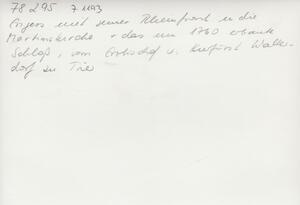 78295 7 1193
Engers mit seiner Rheinfront u die
Martinskirche + das um 1760 erbaute
Schloß, vom Erzbischof u. Kurfürst Walder-
dorf zu Trier